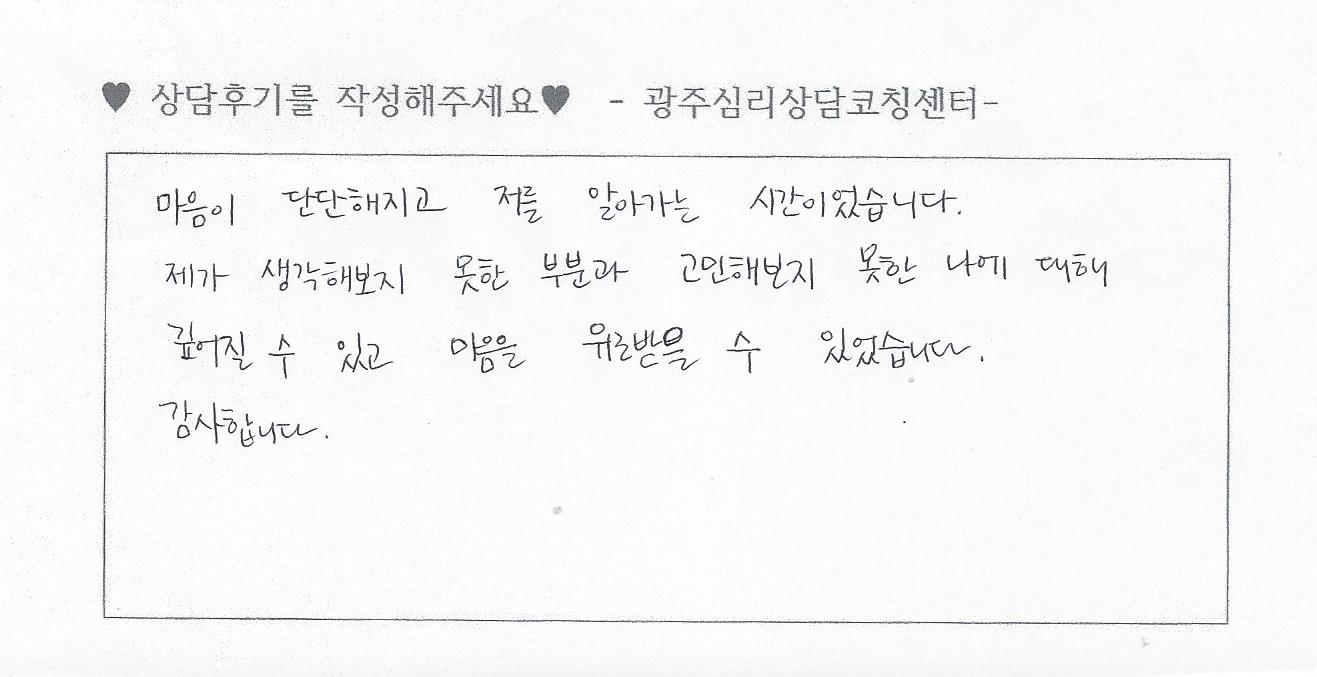 ♥ 상담후기를 작성해주세요♥ - 광주심리상담코칭센터-
마음이 단단해지고 저를 알아가는 시간이었습니다.
제가 생각해보지 못한 부분과 고민해보지 못한 나에 대해
깊어질 수 있고 마음을 위로받을 수 있었습니다.
감사합니다.